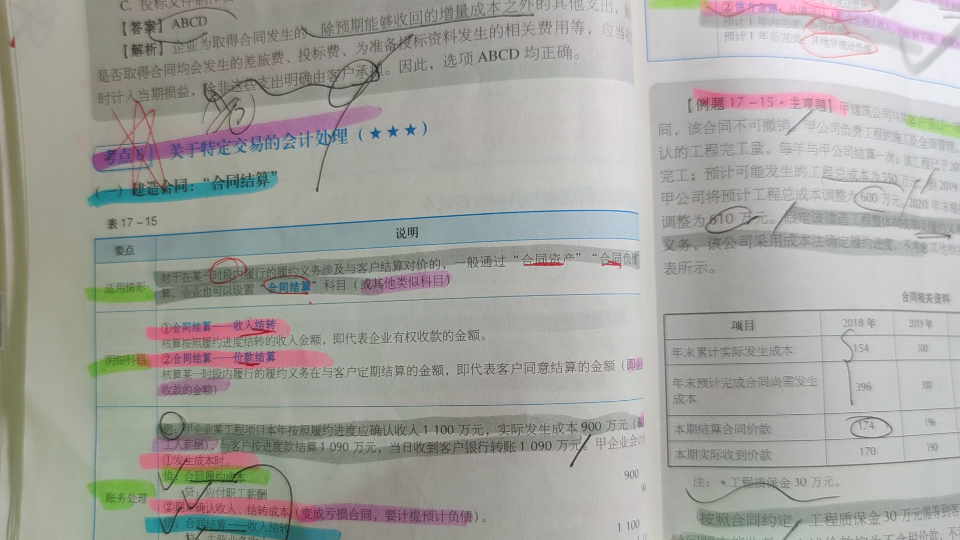 C. 投标文件制作费
【答案】ABCD
【解析】企业为取得合同发生的、除预期能够收回的增量成本之外的其他支出，
是否取得合同均会发生的差旅费、投标费、为准备投标资料发生的相关费用等，应当
时计入当期损益，除非这些支出明确由客户承担。因此，选项ABCD均正确。
考点8 关于特定交易的会计处理（★★★）
（一）建造合同：“合同结算”
表17-15
要点 说明
适用情形
对于在某一时段内履行的履约义务涉及与客户结算对价的，一般通过“合同资产”“合同负债
算，企业也可以设置“合同结算”科目（或其他类似科目）
明细科目
①合同结算——收入结转
核算按照履约进度结转的收入金额，即代表企业有权收款的金额。
②合同结算——价款结算
核算某一时段内履行的履约义务在与客户定期结算的金额，即代表客户同意结算的金额（即
收款的金额）
账务处理
甲企业某工程项目本年按照履约进度应确认收入1 100万元，实际发生成本900万元（
工薪酬），与客户按进度款结算1 090万元，当日收到客户银行转账1 090万元。甲企业会计
①发生成本时。
借：合同履约成本 900
贷：应付职工薪酬
确认收入、结转成本（变成亏损合同，要计提预计负债）。
借：合同结算——收入结转 1 100
预计1年内完成
预计1年后完成 其他非流动负债
【例题17-15·主观题】甲建筑公司与
同，该合同不可撤销。甲公司负责工程的施工及全面管理，
认的工程完工量，每年与甲公司结算一次；该工程已于201
完工；预计可能发生的工程总成本为550万元。到2019
甲公司将预计工程总成本调整为600万元。2020年末根据
调整为610万元。假定该建造工程整体构成
义务，该公司采用成本法确定履约进度，不考虑其他相关
表所示。
合同相关资料
项目 2018年 2019年
年末累计实际发生成本 154 300
年末预计完成合同尚需发生成本 396 300
本期结算合同价款 174 196
本期实际收到价款 170 190
注：*工程质保金30万元。
按照合同约定，工程质保金30万元需等到客